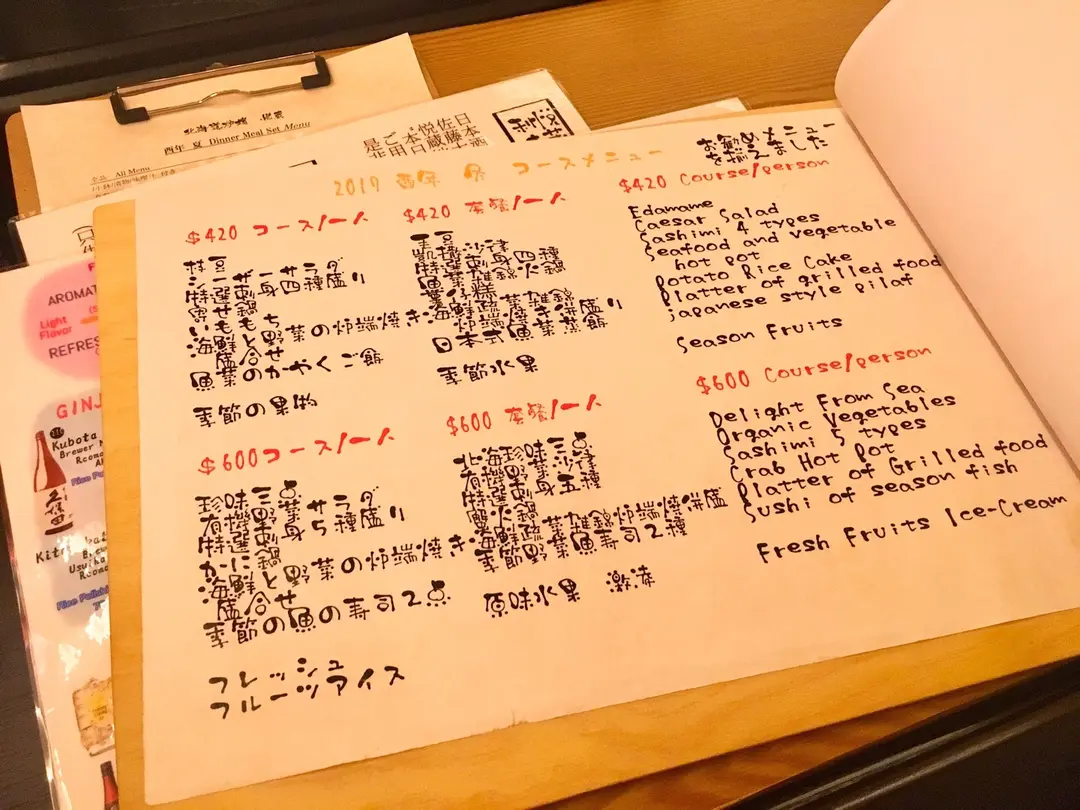 北海道炉端
酉年 夏 Dinner Meal Set Menu
All Menu
日本
佐藤
悦蔵
本日
ご用
是非
AROMAT
Light
Flavor
REFRES
GINJ
Kubota
Brewer
久保田
2017 酉年 コースメニュー
お勧めメニュー
を揃えました
$420 コース/一人
枝豆
シーザーサラダ
特選刺身四種盛り
寄せ鍋
いももち
海鮮と野菜の炉端焼き
盛合せ
魚菜のかやくご飯
季節の果物
$600コース/一人
珍味三点
有機野菜サラダ
特選刺身5種盛り
かに鍋
海鮮と野菜の炉端焼き
盛合せ
季節の魚の寿司2点
フレッシュ
フルーツアイス
$420 套餐/一人
毛豆
凱撒沙律
特選刺身四種
海鮮蔬菜雜錦
炉端焼き併盛り
日本式魚菜飯
季節水果
$600 套餐/一人
北海珍味三点
有機野菜沙律
特選刺身五種
蟹火鍋
海鮮蔬菜雑錦炉端焼併盛
季節野菜魚寿司2種
原味水果
$420 Course/person
Edamame
Caesar Salad
Sashimi 4 types
Seafood and vegetable
hot pot
Potato Rice Cake
Platter of grilled food
Japanese style pilaf
Season Fruits
$600 Course/person
Delight From Sea
Organic Vegetables
Sashimi 5 types
Crab Hot Pot
Platter of Grilled food
Sushi of season fish
Fresh Fruits Ice-Cream